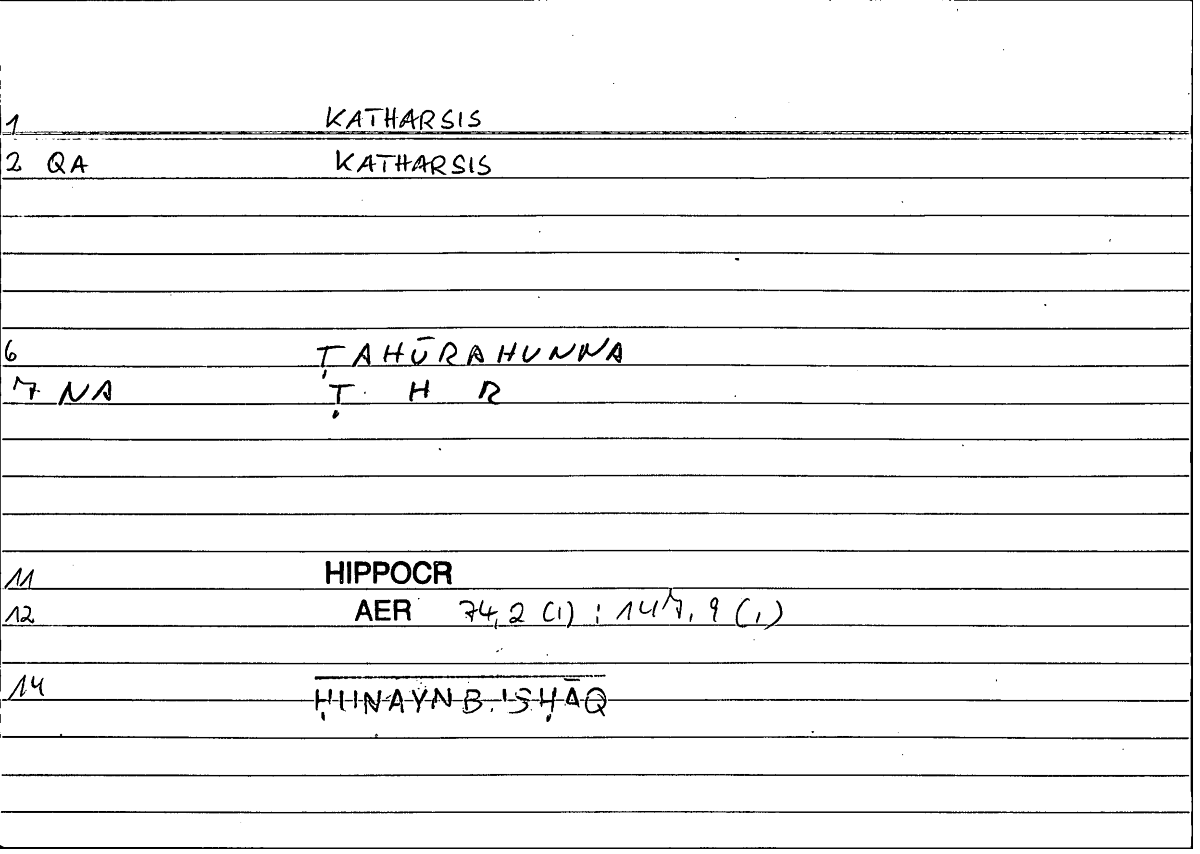 1 KATHARSIS
2 QA KATHARSIS
6 ṬAHŪRAHUNNA
7 NA Ṭ H R
11 HIPPOCR
12 AER 74,2 (1) ; 147, 9 (1)
14 ḤUNAYN B. 'SḤĀQ